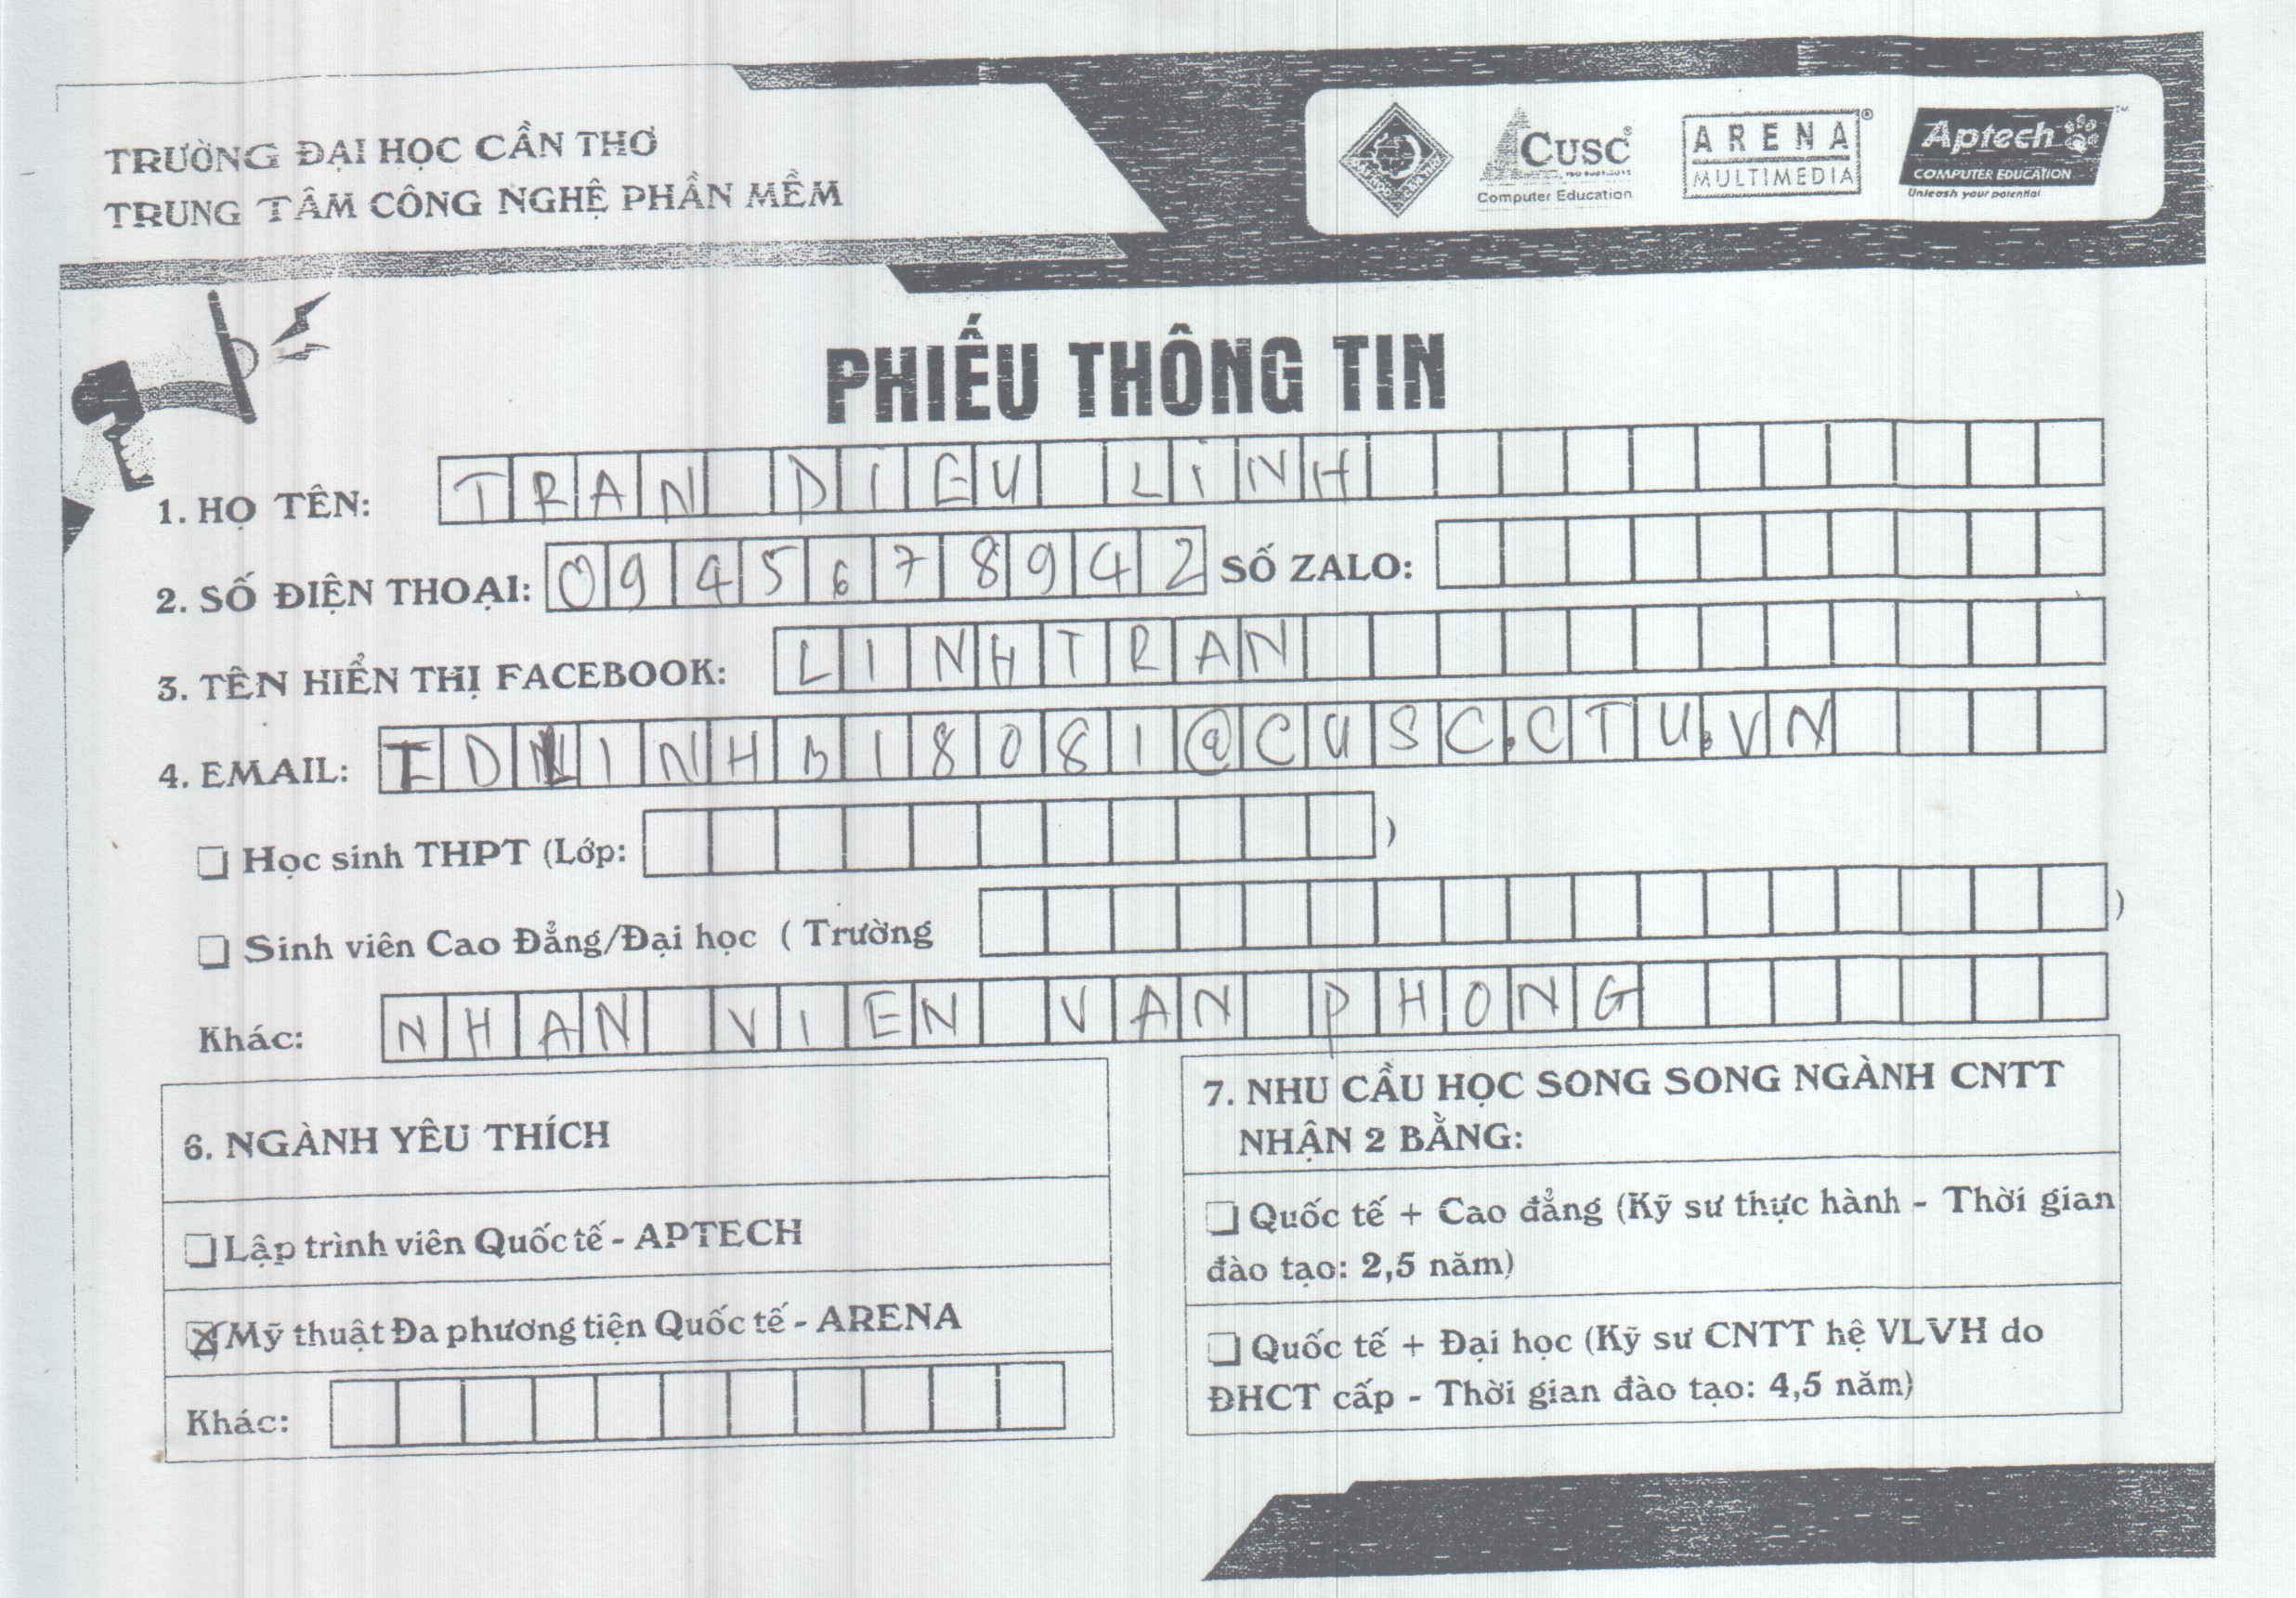 TRƯỜNG ĐẠI HỌC CẦN THƠ
TRUNG TÂM CÔNG NGHỆ PHẦN MỀM
CUSC®
Computer Education
ARENA®
MULTIMEDIA
Aptech™
COMPUTER EDUCATION
Unleash your potential
PHIẾU THÔNG TIN
1. HỌ TÊN: TRAN DIEU LINH
2. SỐ ĐIỆN THOẠI: 0945678942 SỐ ZALO:
3. TÊN HIỂN THỊ FACEBOOK: LINHTRAN
4. EMAIL: TDLINHB18081@CUSC.CTU.VN
❑ Học sinh THPT (Lớp: )
❑ Sinh viên Cao Đẳng/Đại học ( Trường )
Khác: NHAN VIEN VAN PHONG
6. NGÀNH YÊU THÍCH
❑ Lập trình viên Quốc tế - APTECH
☒ Mỹ thuật Đa phương tiện Quốc tế - ARENA
Khác:
7. NHU CẦU HỌC SONG SONG NGÀNH CNTT
NHẬN 2 BẰNG:
❑ Quốc tế + Cao đẳng (Kỹ sư thực hành - Thời gian
đào tạo: 2,5 năm)
❑ Quốc tế + Đại học (Kỹ sư CNTT hệ VLVH do
ĐHCT cấp - Thời gian đào tạo: 4,5 năm)